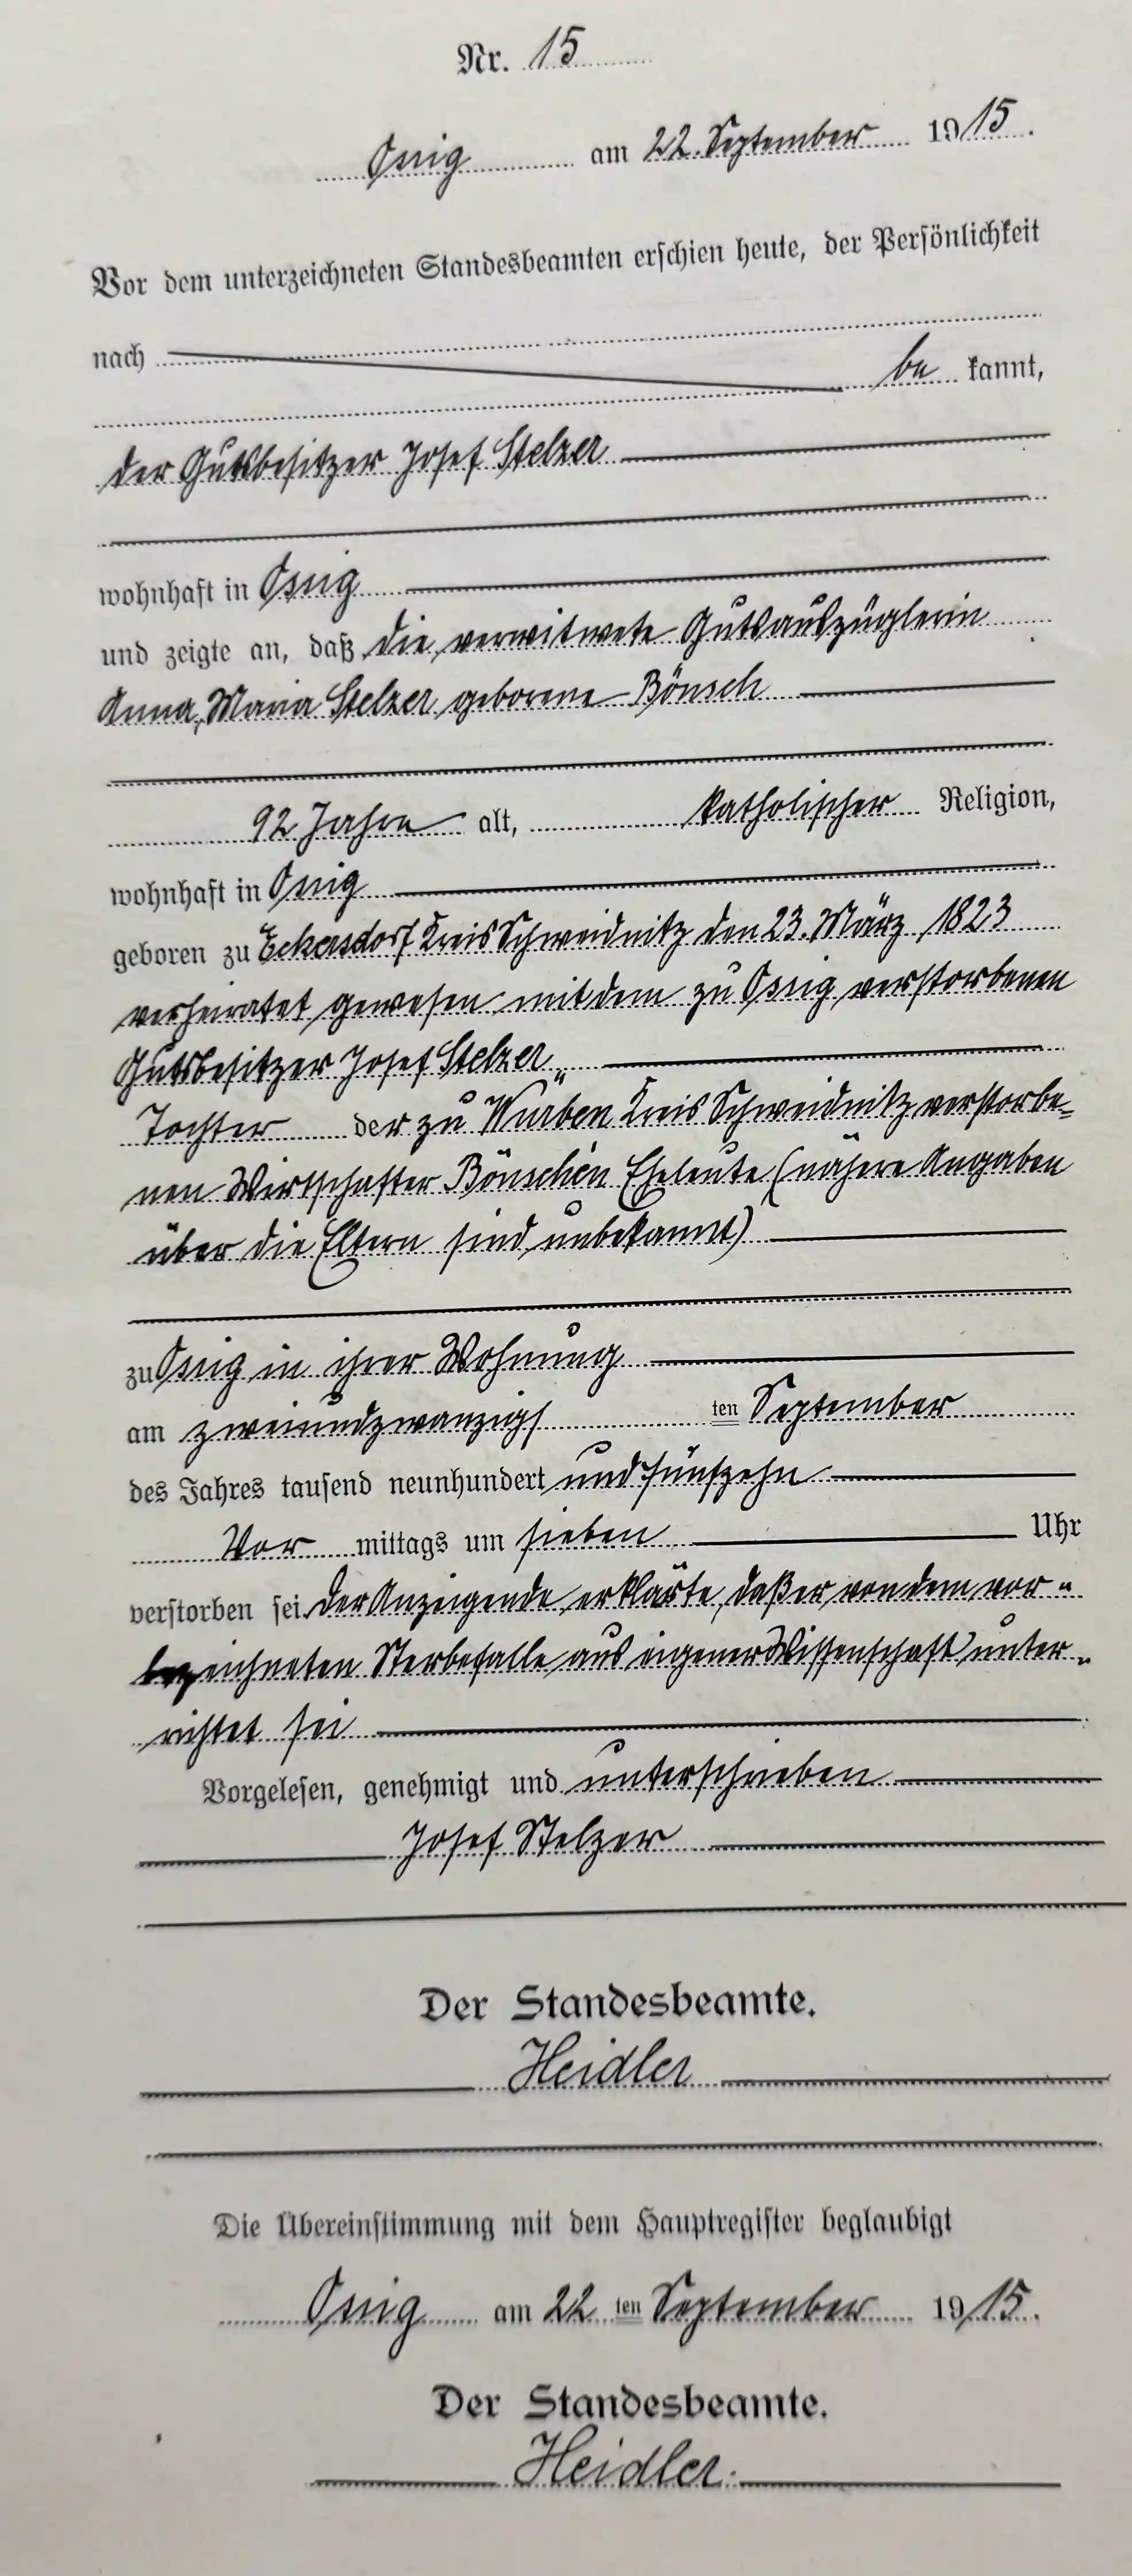 Nr. 15
Ossig am 22. September 1915.
Vor dem unterzeichneten Standesbeamten erschien heute, der Persönlichkeit
nach
be kannt,
der Gutsbesitzer Josef Stelzer
wohnhaft in Ossig
und zeigte an, daß die verwitwete Gutsauszüglerin
Anna, Maria Stelzer geborene Bönsch
92 Jahre alt, katholischer Religion,
wohnhaft in Ossig
geboren zu Eckersdorf Kreis Schweidnitz den 23. März 1823
verheiratet gewesen mit dem zu Ossig verstorbenen
Gutsbesitzer Josef Stelzer
Tochter der zu Würben Kreis Schweidnitz verstorbe-
nen Wirtschafter Bönschen Eheleute (nähere Angaben
über die Eltern sind unbekannt)
zu Ossig in ihrer Wohnung
am zweiundzwanzigs ten September
des Jahres tausend neunhundert und fünfzehn
Vor mittags um sieben Uhr
verstorben sei. Der Anzeigende erklärte, daß er von dem vor-
bezeichneten Sterbefalle aus eigener Wissenschaft unter-
richtet sei
Vorgelesen, genehmigt und unterschrieben
Josef Stelzer
Der Standesbeamte.
Heidler
Die Übereinstimmung mit dem Hauptregister beglaubigt
Ossig am 22 ten September 1915.
Der Standesbeamte.
Heidler.